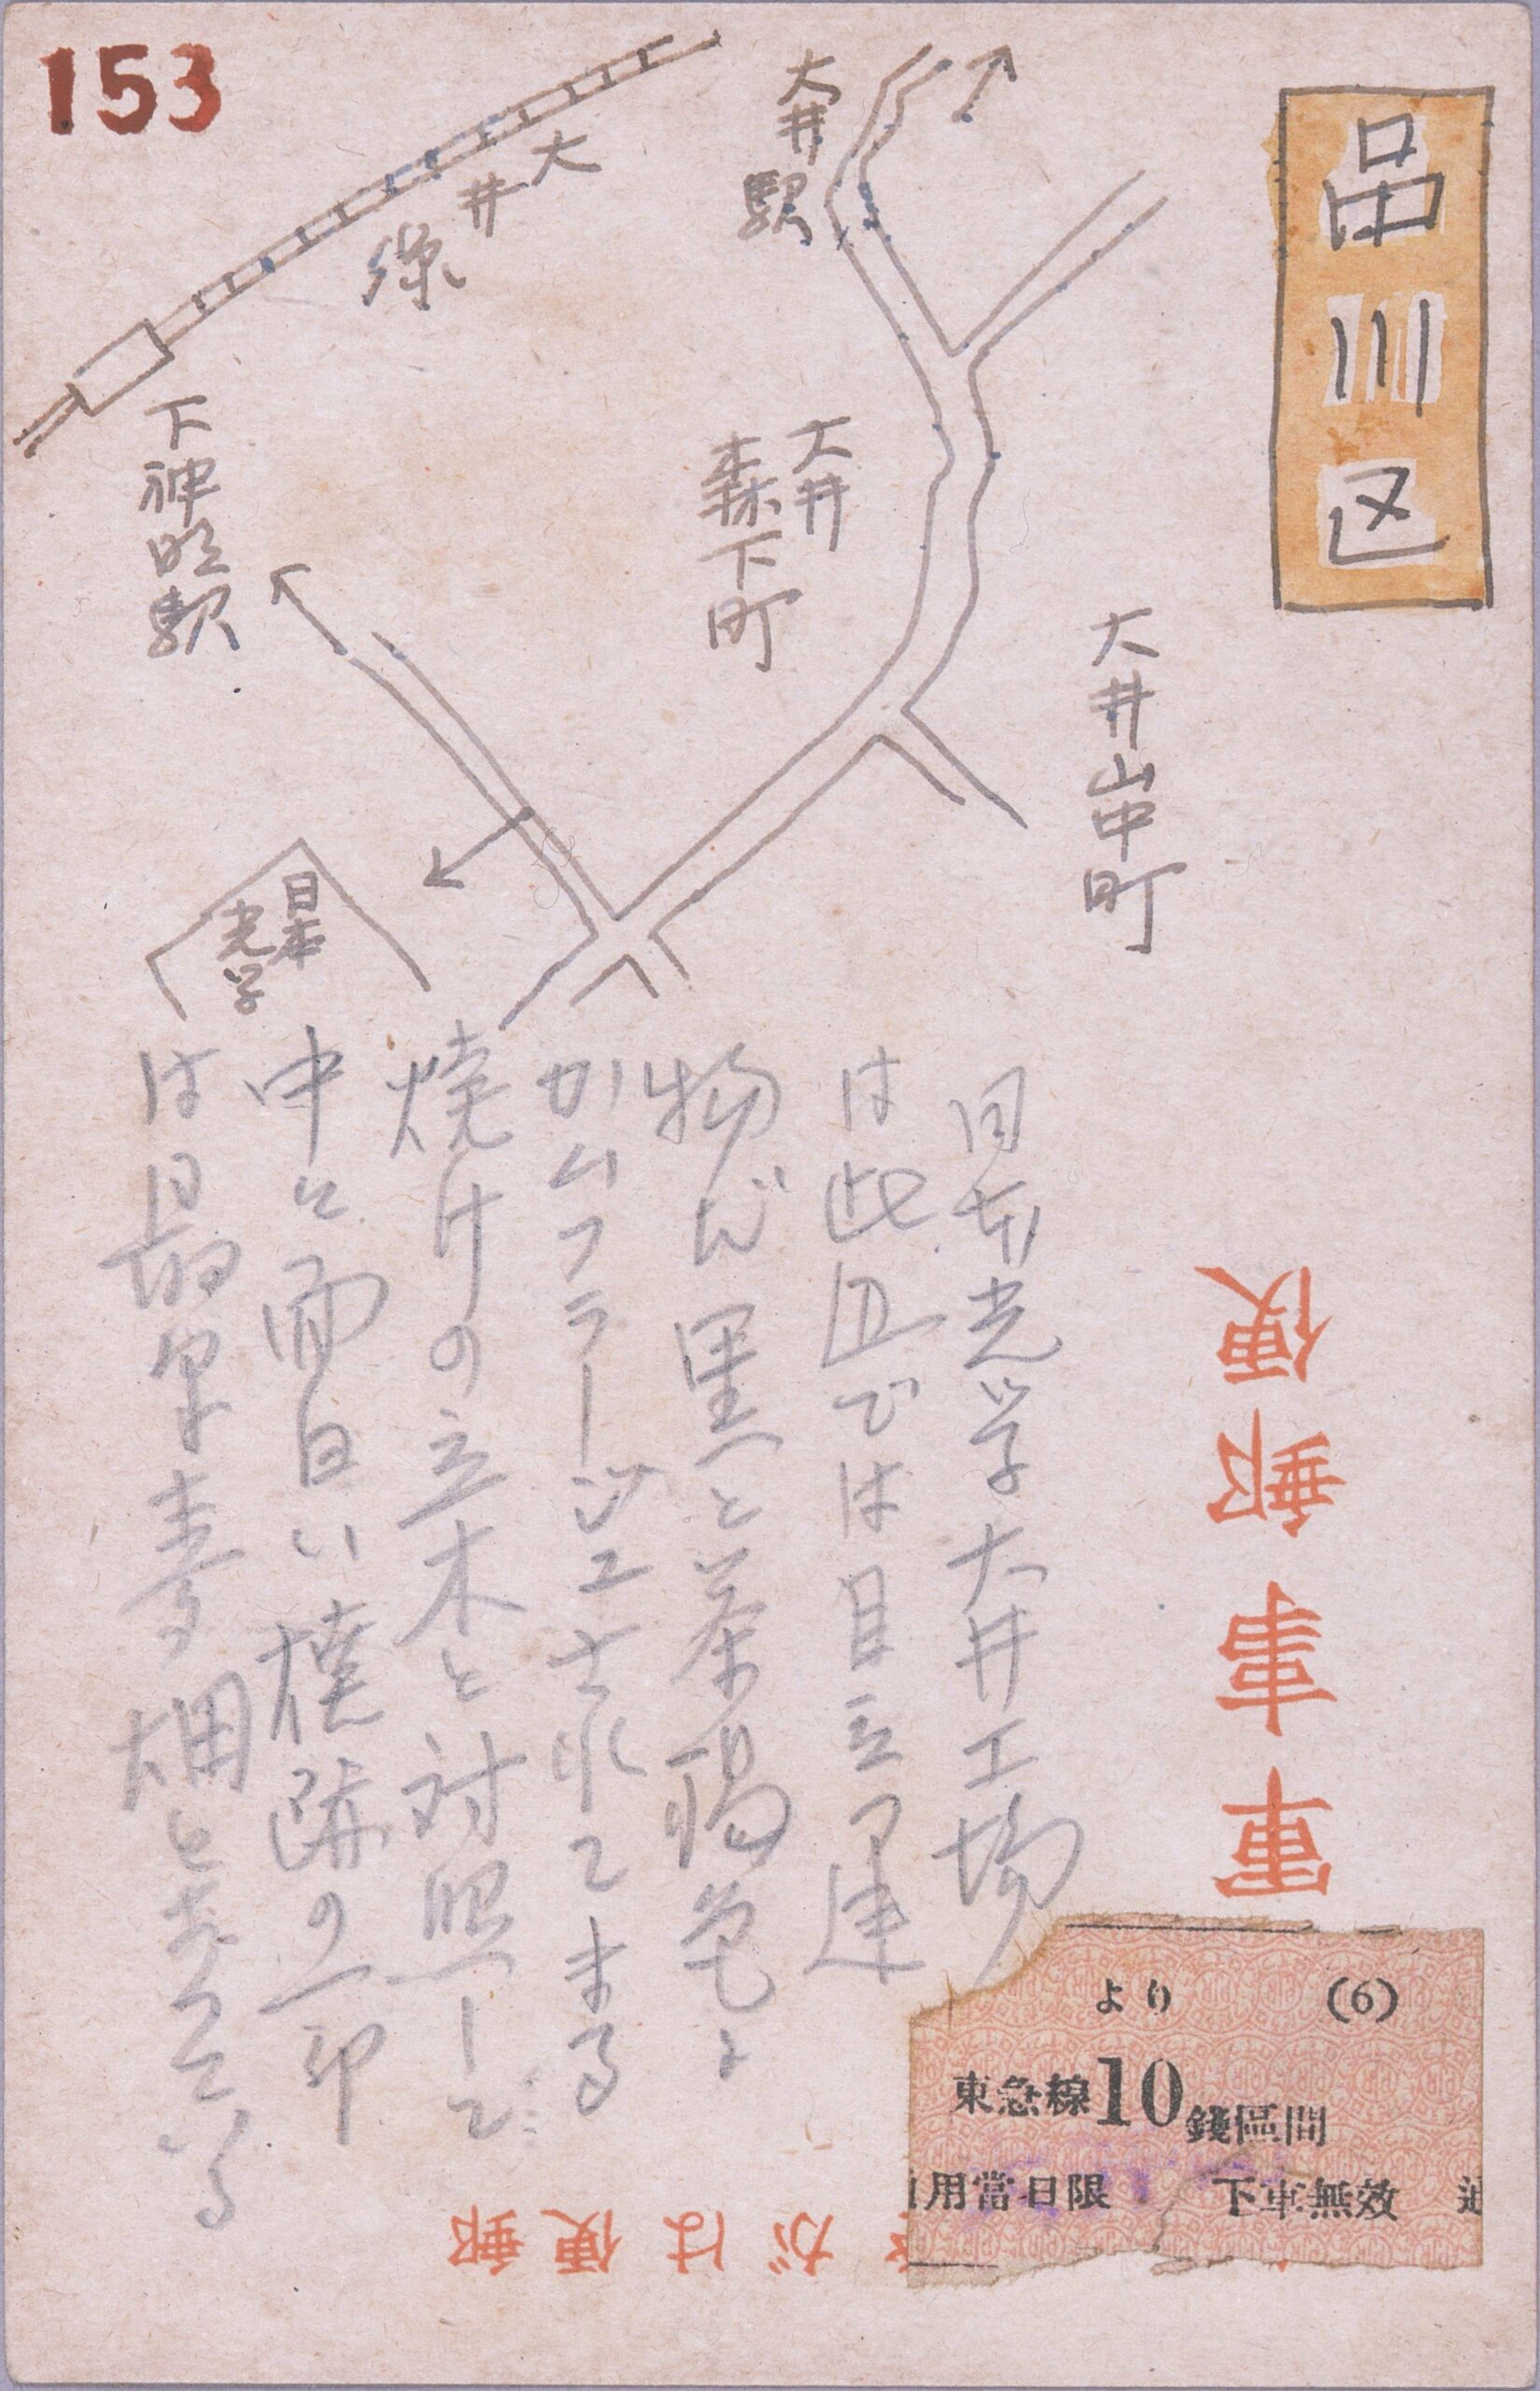 153
品川区
大井駅
大井線
下神明駅
大井
森下町
大井山中町
日本
光学
日本光学大井工場
は此辺では目立つ建
物だ 黒と茶褐色に
カムフラージユされてまる
焼けの立木と対照して
中々面白い 焼跡の一部
は最早麦畑となつている
軍事郵便
郵便はが
より (6)
東急線10錢區間
用當日限 下車無效